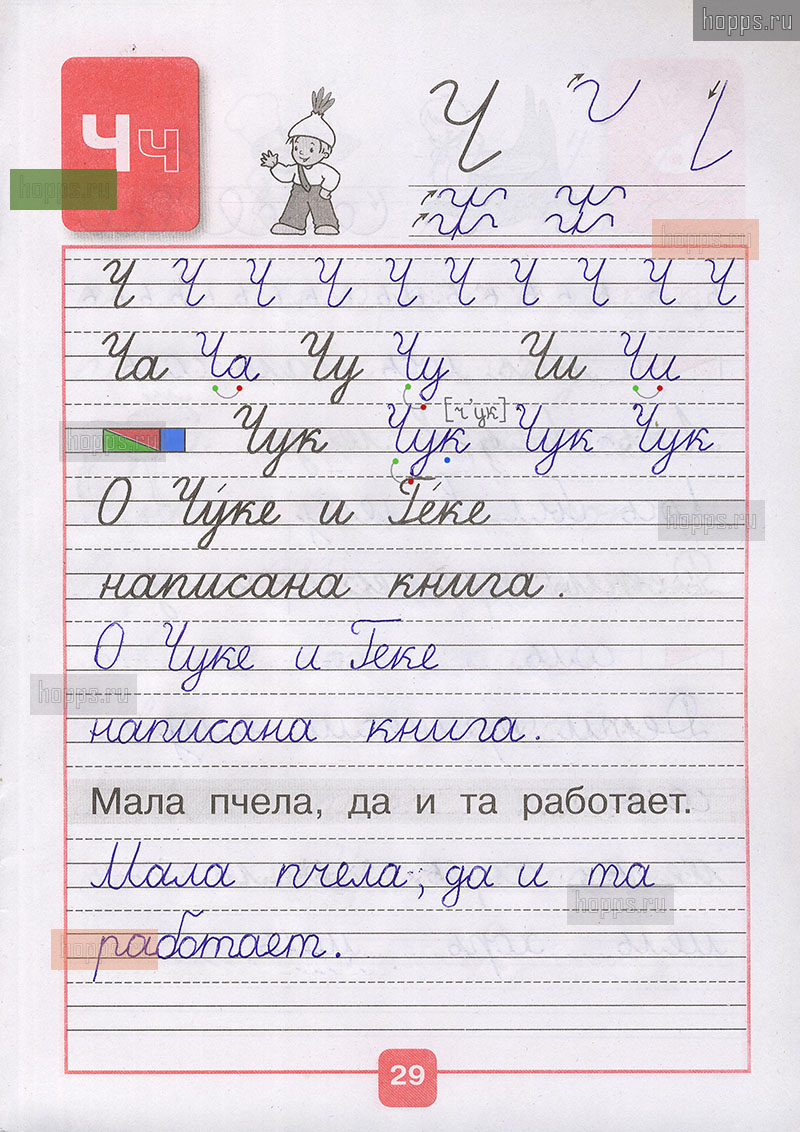 hopps.ru
Чч
Ч
hopps.ru
hopps.ru
Ч Ч Ч Ч Ч Ч Ч Ч Ч Ч
Ча Ча Чу Чу Чи Чи
[ч'ук]
hopps.ru
Чук Чук Чук Чук
О Чу́ке и Ге́ке
hopps.ru
написана книга.
О Чуке и Геке
hopps.ru
написана книга.
Мала пчела, да и та работает.
Мала пчела, да и та
hopps.ru
работает.
hopps.ru
29